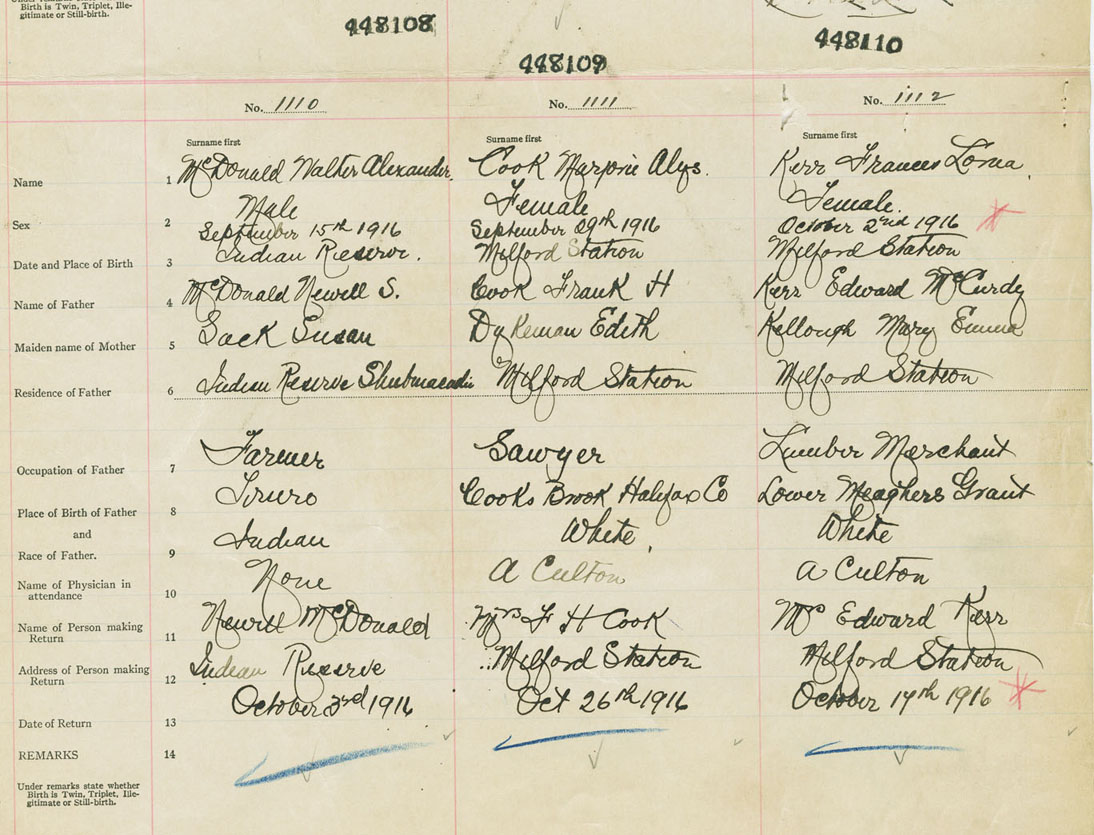 Under remarks state whether
Birth is Twin, Triplet, Ille-
gitimate or Still-birth.
448108
448109
448110
No. 1110
No. 1111
No. 1112
Surname first
Surname first
Surname first
Name 1 McDonald Walter Alexander. Cook Marjorie Alys. Kerr Frances Lorna.
Sex 2 Male Female Female.
September 15th 1916 September 29th 1916 October 2nd 1916
Date and Place of Birth 3 Indian Reserve. Milford Station Milford Station
Name of Father 4 McDonald Newell S. Cook Frank H Kerr Edward McCurdy
Maiden name of Mother 5 Sack Susan Dykeman Edith Kellough Mary Emma
Residence of Father 6 Indian Reserve Shubenacadie Milford Station Milford Station
Occupation of Father 7 Farmer Sawyer Lumber Merchant
Place of Birth of Father 8 Truro Cooks Brook Halifax Co Lower Meaghers Grant
and
Race of Father. 9 Indian White White
Name of Physician in
attendance 10 None A Culton A Culton
Name of Person making
Return 11 Newell McDonald Mrs F H Cook Mrs Edward Kerr
Address of Person making
Return 12 Indian Reserve Milford Station Milford Station
Date of Return 13 October 3rd 1916 Oct 26th 1916 October 17th 1916
REMARKS 14
Under remarks state whether
Birth is Twin, Triplet, Ille-
gitimate or Still-birth.